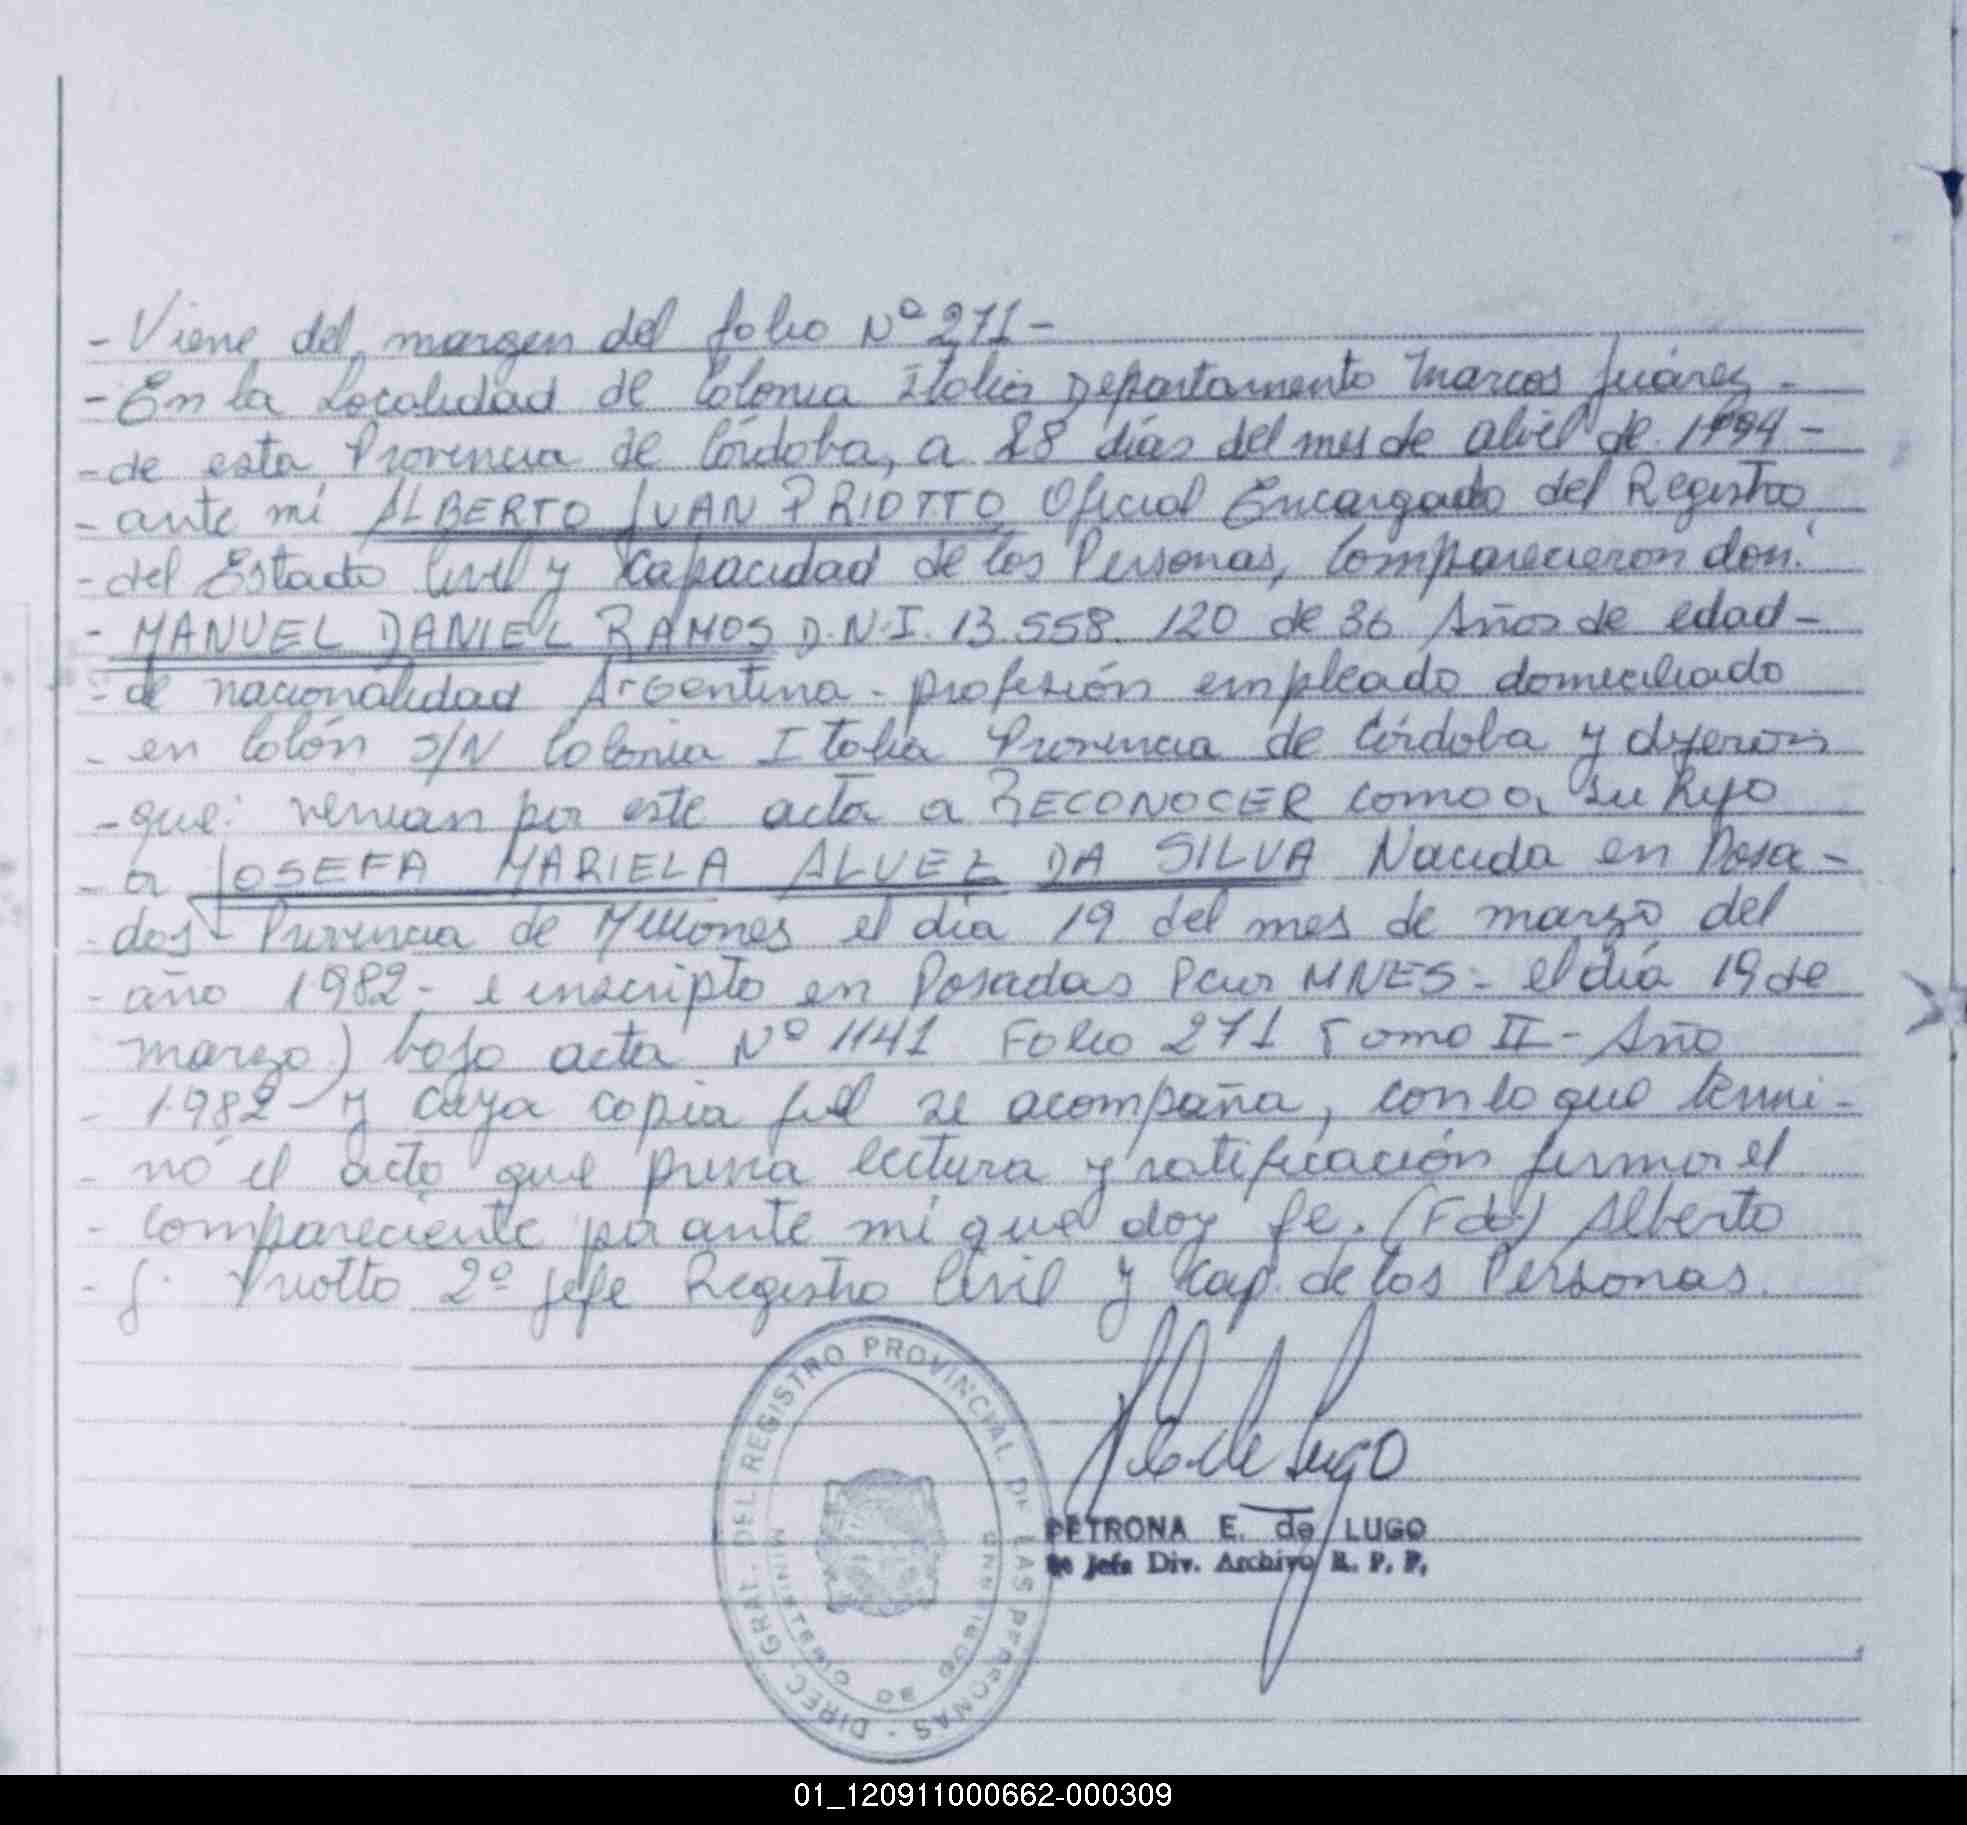 - Viene del margen del folio Nº 271 -
- En la Localidad de Colonia Italia Departamento Marcos Juárez -
- de esta Provincia de Córdoba, a 28 días del mes de abril de 1994 -
- ante mi ALBERTO JUAN PRIOTTO Oficial Encargado del Registro
- del Estado Civil y Capacidad de las Personas, comparecieron don:
- MANUEL DANIEL RAMOS D.N.I. 13.558.120 de 36 Años de edad -
- de nacionalidad Argentina - profesión empleado domiciliado
- en Colón S/N Colonia Italia Provincia de Córdoba y dijeron
- que: venian por este acta a RECONOCER como a su hijo
- a JOSEFA MARIELA ALVEZ DA SILVA Nacida en Posa -
- das - Provincia de Misiones el día 19 del mes de marzo del
- año 1982 - e inscripto en Posadas MNES - el día 19 de
marzo) bajo acta Nº 1141 Folio 271 Tomo II - Año
- 1982 - y cuya copia fiel se acompaña, con lo que termi -
- nó el acto que previa lectura y ratificación firma el
- compareciente por ante mi que doy fe. (Fdo) Alberto
- J. Priotto 2º Jefe Registro Civil y Cap. de las Personas.
DIREC. GRAL. DEL REGISTRO PROVINCIAL DE LAS PERSONAS -
MINISTERIO DE GOBIERNO
de Lugo
PETRONA E. de LUGO
Jefa Div. Archivo R. P. P.
01_120911000662-000309